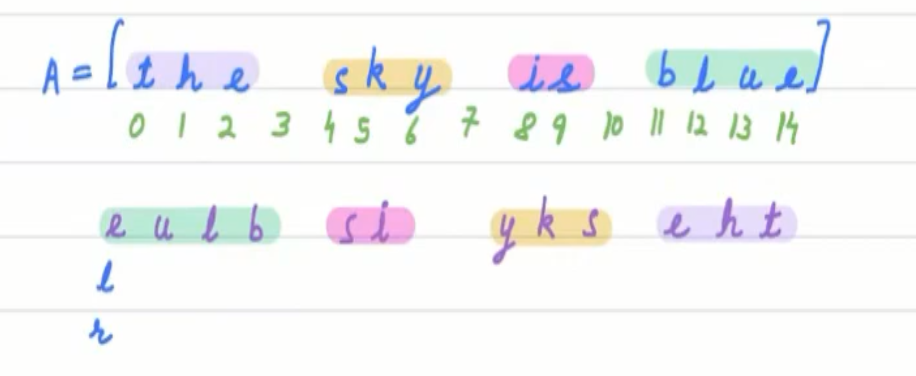 A = [ t h e   s k y   i s   b l u e ]
0 1 2 3 4 5 6 7 8 9 10 11 12 13 14
e u l b   s i   y k s   e h t
l
r